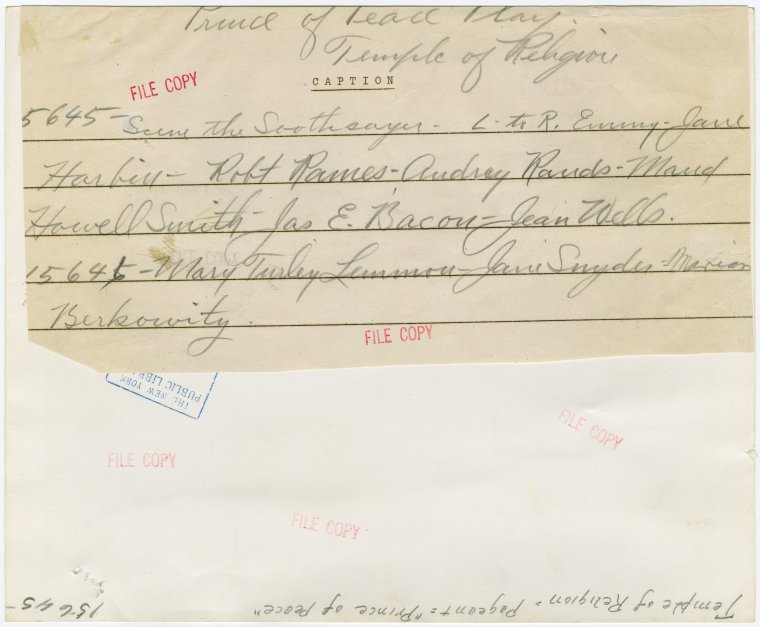 Prince of Peace Play.
Temple of Religion
FILE COPY
CAPTION
5645- Scene the Soothsayer - L. to R. Emmy-Jane
Harbin - Robt Rames - Audrey Rands - Maud
Howell Smith - Jas E. Bacon - Jean Wells.
FILE COPY
15645 - Mary Turley Lemmon - Jane Snyder - Marian
Berkowitz.
FILE COPY
THE NEW YORK
PUBLIC LIB
FILE COPY
FILE COPY
FILE COPY
Temple of Religion - Pageant = "Prince of Peace"
15645-